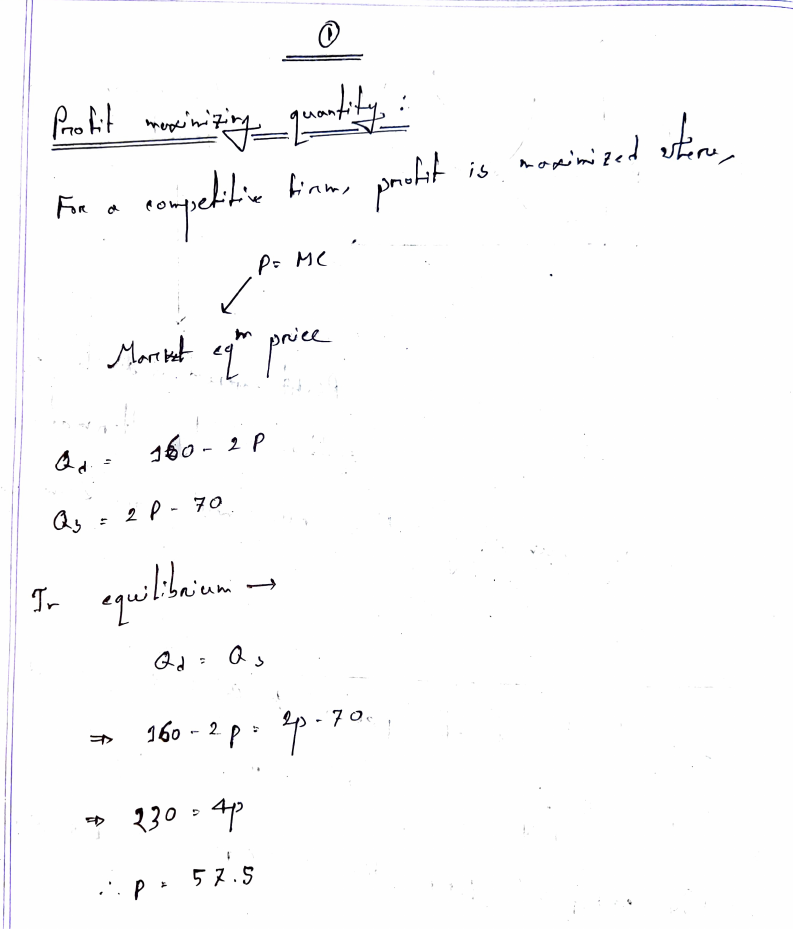 ①
Profit maximizing quantity :
For a competitive firm, profit is maximized where,
P = MC
Market eqm price
Qd = 160 - 2 P
Qs = 2 P - 70
In equilibrium →
Qd = Qs
⇒ 160 - 2 p = 2p - 70
⇒ 230 = 4p
∴ p = 57.5